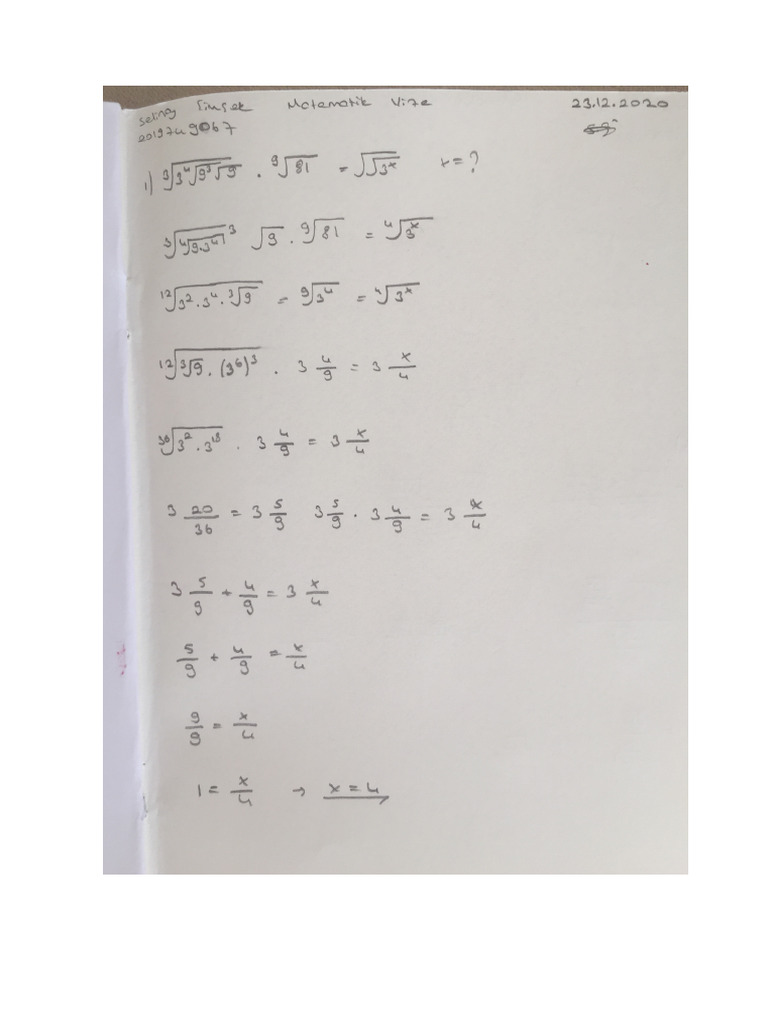 Matematik Vize 23.12.2020
1) ∛(3 ⁴√(9 ³√9)) . ⁹√81 = √√3ˣ x = ?
³√(⁴√(9.3⁴)) ³ √9 . ⁹√81 = ⁴√3ˣ
¹²√(3² . 3⁴ . ³√9) = ⁹√3⁴ = ⁴√3ˣ
¹²√(³√9 . (3⁶)³) . 3 4/9 = 3 x/4
³⁶√(3² . 3¹⁸) . 3 4/9 = 3 x/4
3 20/36 = 3 5/9 3 5/9 . 3 4/9 = 3 x/4
3 5/9 + 4/9 = 3 x/4
5/9 + 4/9 = x/4
9/9 = x/4
1 = x/4 → x = 4